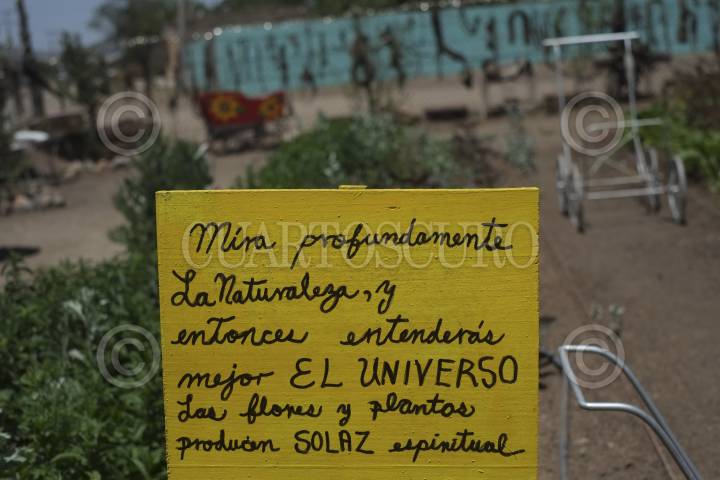 Mira profundamente
CUARTOSCURO
La Naturaleza, y
entonces entenderás
mejor EL UNIVERSO
Las flores y plantas
producen SOLAZ espiritual